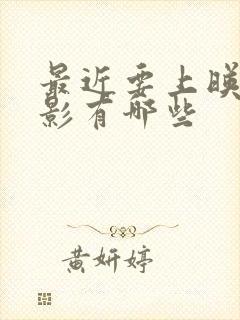 最近要上映
影有哪些
黄妍婷